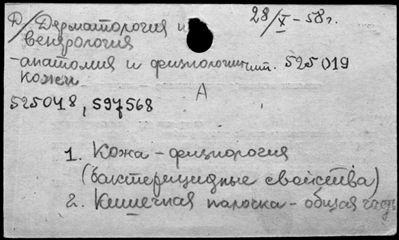 Д/ Дерматология и 28/X-58г.
венерология
-анатомия и физиология шт. 525019
кожи
525048, 597568 А
1. Кожа - физиология
(бактерицидные свойства)
2. Кишечная палочка - общая